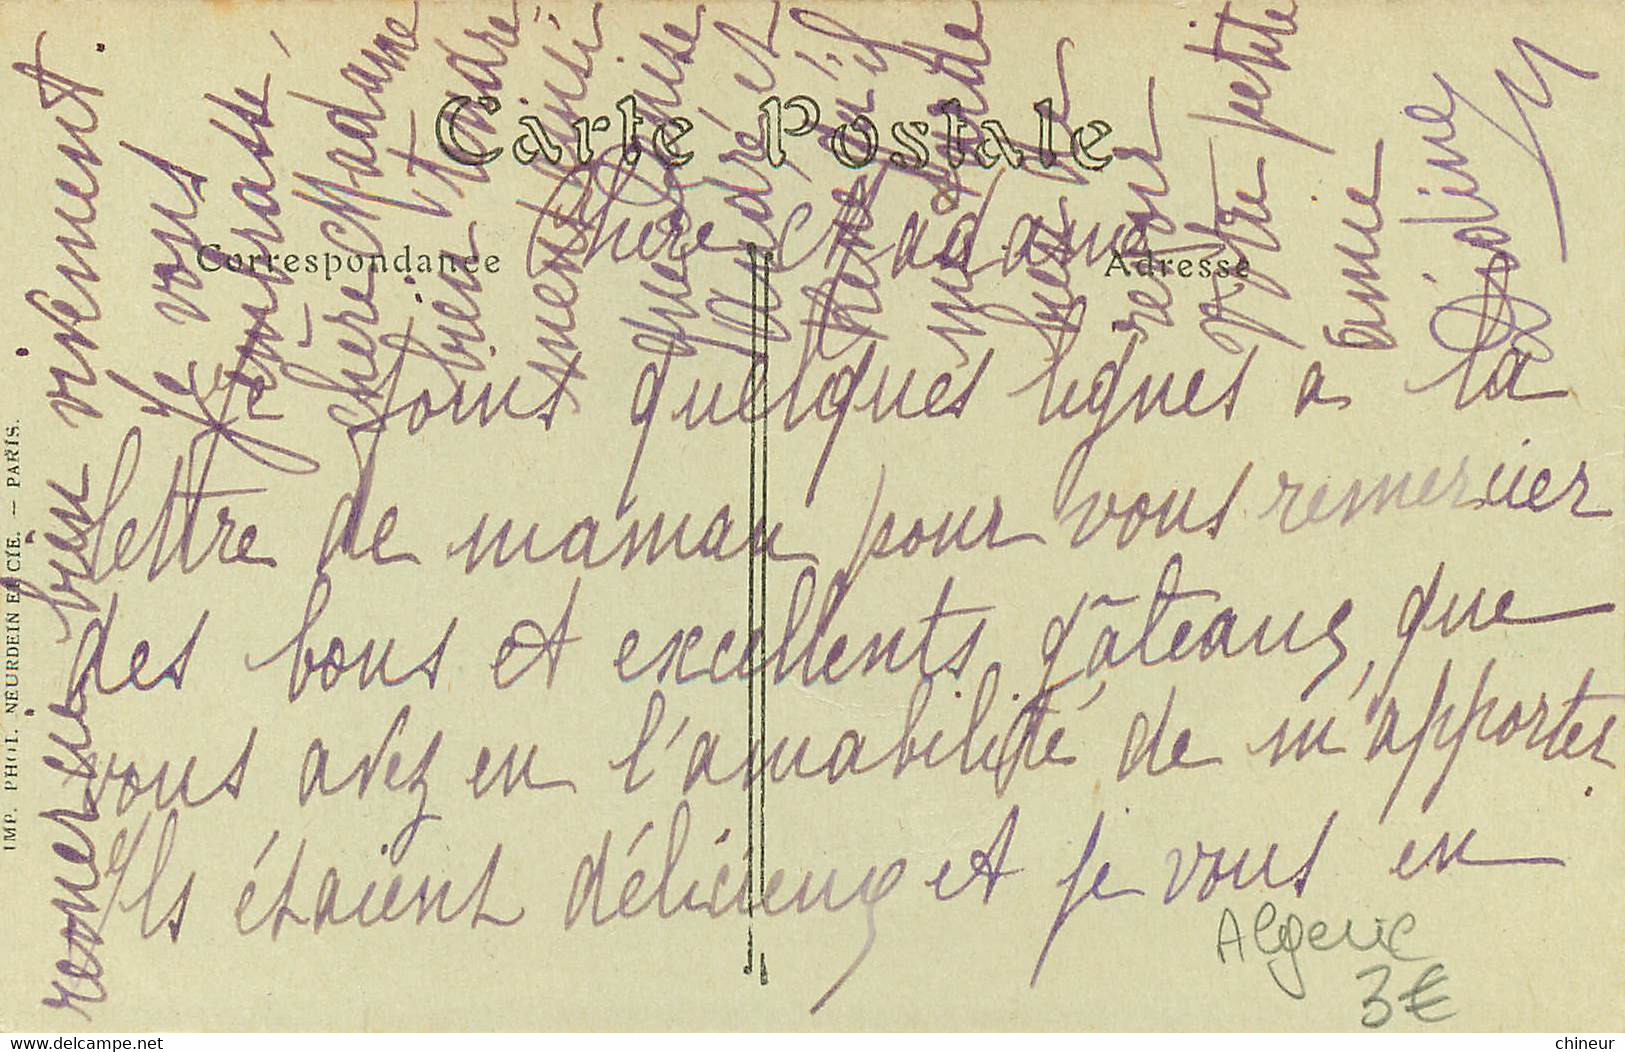 Carte Postale
Correspondance
Adresse
Chère Madame
Je joins quelques lignes à la
lettre de maman pour vous remercier
des bons et excellents gâteaux, que
vous avez eu l'amabilité de m'apporter.
Ils étaient délicieux et je vous en
remercie bien vivement.
Je vous
embrasse
chère Madame
bien tendre
ment ainsi
que
André et
votre petite
amie
IMP. PHOT. NEURDEIN ET CIE. — PARIS.
Algerie
3€
www.delcampe.net
chineur